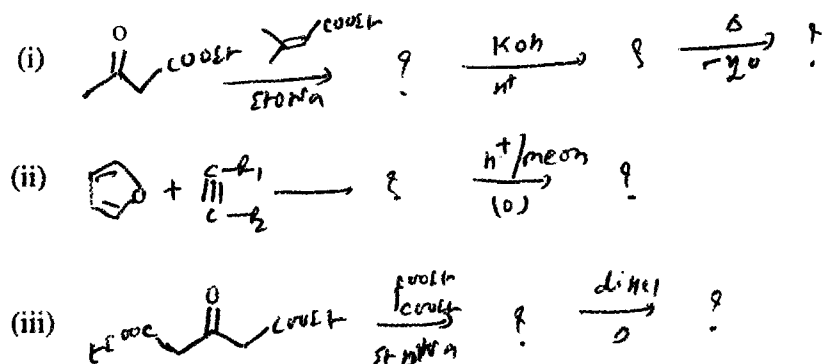 (i) O COOEt COOEt EtONa ? KOH H+ ? Δ -H2O ?
(ii) O + C-R1 C-R2 ? H+/MeOH (O) ?
(iii) EtOOC O COOEt COOEt COOEt ? dil HCl Δ ?